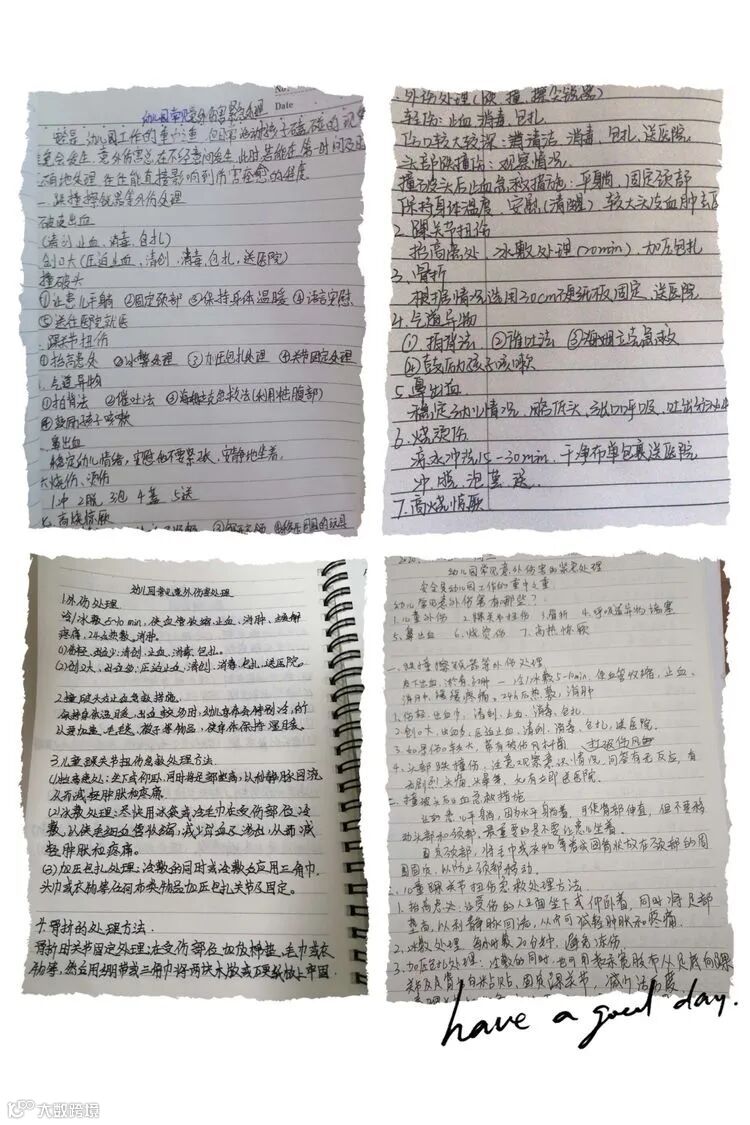 No.
Date
幼儿园常见意外伤害紧急处理
安全是幼儿园工作的重中之重
一.跌撞擦锐器等外伤处理
破皮出血
(清创 止血、消毒、包扎)
创口大(压迫止血、清创、消毒、包扎、送医院)
撞破头
①让患儿平躺 ②固定颈部 ③保持身体温暖 ④语言安慰
⑤送往医院就医
踝关节扭伤
①抬高患处 ②冰敷处理 ③加压包扎处理 ④关节固定处理
气道异物
①拍背法 ②催吐法 ③海姆立克急救法(利用 腹部)
④鼓励孩子咳嗽
鼻出血
稳定幼儿情绪,安慰他不要紧张,安静地坐着。
六烧伤、烫伤
1冲 2脱 3泡 4盖 5送
七.高烧惊厥
1.外伤处理(跌、撞、擦尖锐器)
轻伤:止血 消毒 包扎
伤口较大较深:清洁 消毒、包扎、送医院
头部跌撞伤:观察情况
撞破头后止血急救措施:平躺,固定颈部
保持身体温度、安慰(清醒) 较大头皮血肿去医
2.踝关节扭伤
抬高患处、冰敷处理(20min)、加压包扎
3.骨折
根据情况选用30cm硬纸板固定,送医院
4.气道异物
①拍背法 ②催吐法 ③海姆立克急救
④鼓励孩子咳嗽
5.鼻出血
稳定幼儿情况,略低头,张口呼吸,吐出
6.烧烫伤
凉水冲洗15-30min、干净布单包裹送医院
冲、脱、泡、盖、送
7.高烧惊厥
幼儿园常见意外伤害处理
1.外伤处理
冷/冰敷5-10min,使血管收缩止血、消肿、缓解
疼痛,24h后热敷,消肿。
(1)伤轻,出血少:清创、止血、消毒、包扎。
(2)创口大、出血多:压迫止血、清创、消毒、包扎、送医院。
2.撞破头后止血急救措施。
保持身体温暖,出血较多时,幼儿身体会特别冷,所
以要加盖、毛毯、被子等物品,使身体保持温暖。
3.儿童踝关节扭伤急救处理方法
(1)抬高患处:坐下或仰卧,同时将足部垫高,以利静脉回流,
从而减轻肿胀和疼痛。
(2)冰敷处理:尽快用冰袋或冷毛巾在受伤部位冷
敷,以使毛细血管收缩,减少渗血 渗出,从而减
轻肿胀和疼痛。
(3)加压包扎处理:冷敷的同时或冷敷后应用三角巾、
头巾或衣物等任何布类物品加压包扎关节及固定。
4.骨折的处理方法.
骨折时关节固定处理:在受伤部位加放棉垫,毛巾或衣
物等,然后用绷带或三角巾将两块木板或硬纸板
2020.
幼儿园常见意外伤害的紧急处理
安全是幼儿园工作的重中之重
幼儿常见意外伤害有哪些?
1.儿童外伤 2.踝关节扭伤 3.骨折 4.呼吸道异物堵塞
5.鼻出血 6.烧烫伤 7.高热惊厥
一.跌撞擦锐器等外伤处理
皮下出血、淤青红肿—冷/冰敷5-10min,使血管收缩,止血、
消肿、缓解疼痛。24h后热敷,消肿
1.伤轻,出血少,清创、止血、消毒、包扎
2.创口大,出血多,压迫止血、清创、消毒、包扎,送医院。
4.头部跌撞伤,注意观察意识情况,问答有无反应,有
无剧烈头痛、头晕等,尤有立即送医院。
二.撞破头后止血急救措施
让幼患儿平身躺,因为水平身躺着,可使背部伸直,但不要移
动头部和颈部,最重要的是不要让患儿坐着。
固定颈部,将毛巾或衣物等卷成圆筒状放在颈部的周
围固定,以防止颈部移动。
二.儿童踝关节扭伤急救处理方法
1.抬高患处:让受伤的人立即坐下或仰卧着,同时将足部
垫高,以利静脉回流,从而可减轻肿胀和疼痛
2.冰敷处理 每为时数20分钟,避免冻伤
3.加压包扎处理:冷敷的同时,也可用
固定踝关节,减少活动度
have a good day.
大数跨境